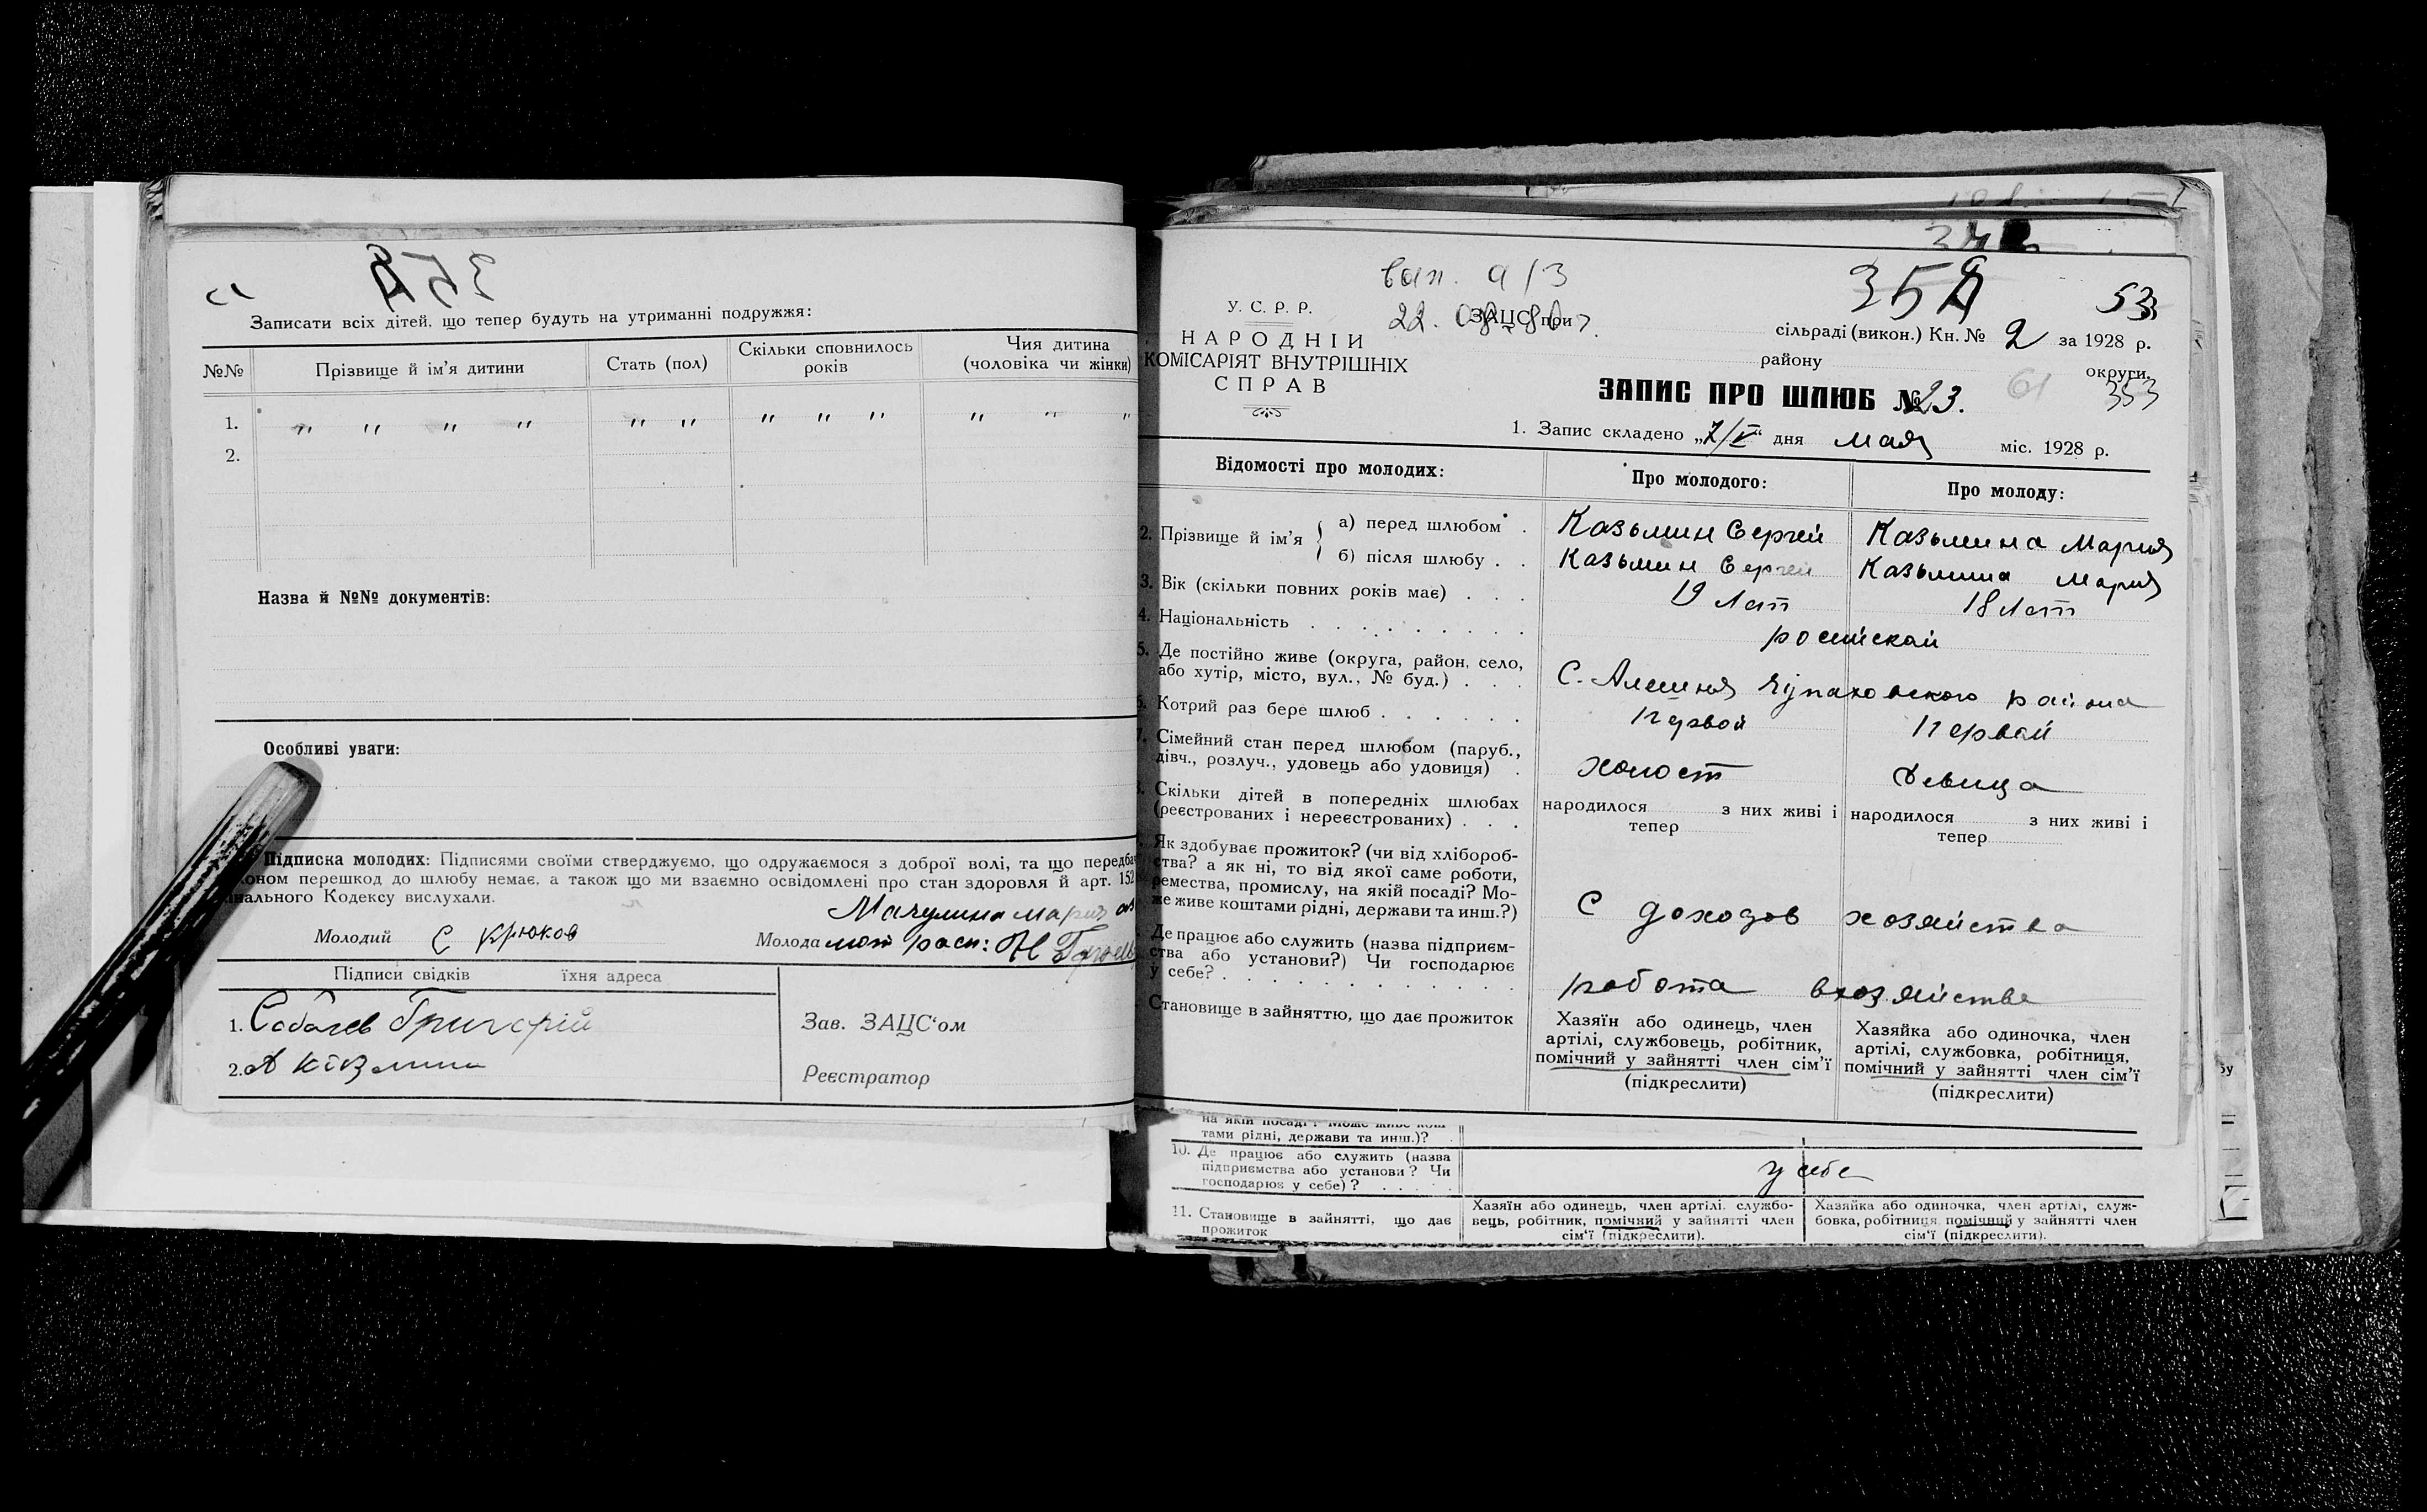 Записати всіх дітей, що тепер будуть на утриманні подружжя:
№№ Прізвище й ім'я дитини Стать (пол) Скільки сповнилось років Чия дитина (чоловіка чи жінки)
1. " " " " " " " " " " " "
2.
Назва й №№ документів:
Особливі уваги:
Підписка молодих: Підписями своїми стверджуємо, що одружаємося з доброї волі, та що передба
коном перешкод до шлюбу немає, а також що ми взаємно освідомлені про стан здоровля й арт. 152
нального Кодексу вислухали.
Молодий С Крюков Молода
Підписи свідків їхня адреса
1. Григорій
2.
Зав. ЗАЦС'ом
Реєстратор
358 53
У. С. Р. Р.
НАРОДНІЙ
КОМІСАРІЯТ ВНУТРІШНІХ
СПРАВ
ЗАЦС при
сільраді (викон.) Кн. № 2 за 1928 р.
району округи.
353
61
ЗАПИС ПРО ШЛЮБ № 23.
1. Запис складено „7/V“ дня мая міс. 1928 р.
Відомості про молодих: Про молодого: Про молоду:
2. Прізвище й ім'я а) перед шлюбом . Казьмин Сергей Казьмина Мария
б) після шлюбу . . Казьмин Сергей Казьмина Мария
3. Вік (скільки повних років має) . . . 19 лет 18 лет
4. Національність . . . . . . . . . росийской
5. Де постійно живе (округа, район, село,
або хутір, місто, вул., № буд.) . . . С. Алешня Чупаховского района
6. Котрий раз бере шлюб . . . . . . первой первой
7. Сімейний стан перед шлюбом (паруб.,
дівч., розлуч., удовець або удовиця) . холост девица
8. Скільки дітей в попередніх шлюбах
(реєстрованих і нереєстрованих) . . .
народилося з них живі і тепер
народилося з них живі і тепер
Як здобуває прожиток? (чи від хлібороб-
ства? а як ні, то від якої саме роботи,
ремества, промислу, на якій посаді? Мо-
же живе коштами рідні, держави та инш.?) С доходов хозяйства
Де працює або служить (назва підприєм-
ства або установи?) Чи господарює
у себе? . . . . . . . . . . . . работа в хозяйстве
Становище в зайняттю, що дає прожиток
Хазяїн або одинець, член
артілі, службовець, робітник,
помічний у зайнятті член сім'ї
(підкреслити)
Хазяйка або одиночка, член
артілі, службовка, робітниця,
помічний у зайнятті член сім'ї
(підкреслити)
тами рідні, держави та инш.)?
10. Де працює або служить (назва
підприємства або установи? Чи
господарює у себе)? . . . . . у себе
11. Становище в зайнятті, що дає
прожиток
Хазяїн або одинець, член артілі, службо-
вець, робітник, помічний у зайнятті член
сім'ї (підкреслити).
Хазяйка або одиночка, член артілі, служ-
бовка, робітниця, помічний у зайнятті член
сім'ї (підкреслити).